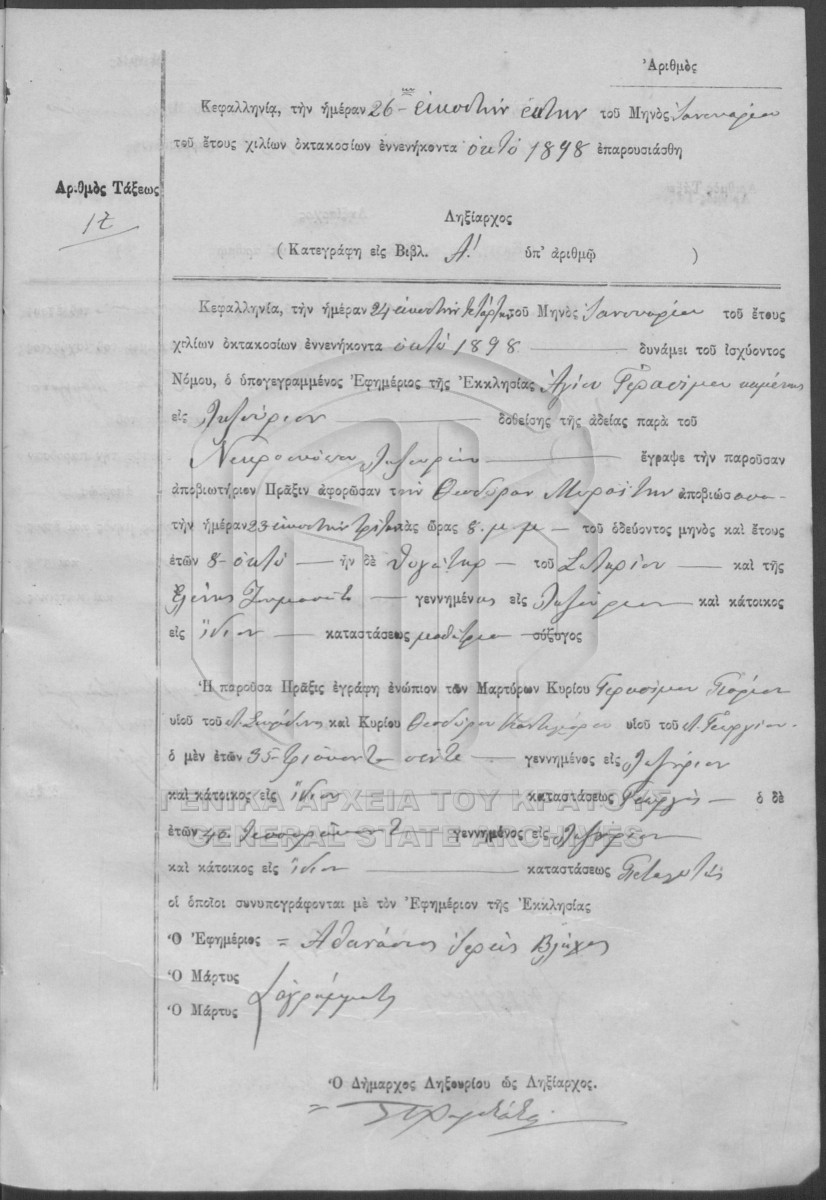 Ἀριθμὸς
Κεφαλληνίᾳ, τὴν ἡμέραν 26 – εἰκοστὴν ἕκτην τοῦ Μηνὸς Ἰανουαρίου
τοῦ ἔτους χιλίων ὀκτακοσίων ἐννενήκοντα ὀκτὸ 1898 ἐπαρουσιάσθη
Ἀριθμὸς Τάξεως
Ληξίαρχος
( Κατεγράφη εἰς Βιβλ. Α! ὑπ' ἀριθμῷ )
Κεφαλληνία, τὴν ἡμέραν 24 εἰκοστὴν τετάρτην τοῦ Μηνὸς Ἰανουαρίου τοῦ ἔτους
χιλίων ὀκτακοσίων ἐννενήκοντα ὀκτὸ 1898 — δυνάμει τοῦ ἰσχύοντος
Νόμου, ὁ ὑπογεγραμμένος Ἐφημέριος τῆς Ἐκκλησίας Ἁγίου Γερασίμου
εἰς Ληξούριον — δοθείσης τῆς ἀδείας παρὰ τοῦ
Ληξουρίου — ἔγραψε τὴν παροῦσαν
ἀποβιωτήριον Πρᾶξιν ἀφορῶσαν τὴν Θεοδώραν ἀποβιώσασα
τὴν ἡμέραν 23 εἰκοστὴν τρίτην τὰς ὥρας 8. μ.μ – τοῦ ὁδεύοντος μηνὸς καὶ ἔτους
ἐτῶν 8 – ὀκτὸ — ἦν δὲ θυγάτηρ – τοῦ Σωτηρίου — καὶ τῆς
Ἑλένης — γεννημένας εἰς Ληξούριον καὶ κάτοικος
εἰς ἴδιον — καταστάσεως μαθήτρια σύζυγος
Ἡ παροῦσα Πρᾶξις ἐγράφη ἐνώπιον τῶν Μαρτύρων Κυρίου Γερασίμου
υἱοῦ τοῦ καὶ Κυρίου Θεοδώρου υἱοῦ τοῦ Γεωργίου
ὁ μὲν ἐτῶν 35 – τριάκοντα πέντε — γεννημένος εἰς Ληξούριον
καὶ κάτοικος εἰς ἴδιον καταστάσεως Γεωργὸς – ὁ δὲ
ΓΕΝΙΚΑ ΑΡΧΕΙΑ ΤΟΥ ΚΡΑΤΟΥΣ
ἐτῶν 40. τεσσαράκοντα γεννημένος εἰς Ληξούριον
GENERAL STATE ARCHIVES
καὶ κάτοικος εἰς ἴδιον — καταστάσεως
οἱ ὁποῖοι συνυπογράφονται μὲ τὸν Ἐφημέριον τῆς Ἐκκλησίας
Ὁ Ἐφημέριος = Ἀθανάσιος Ἱερεὺς Βλάχος
Ὁ Μάρτυς
ἀγράμματοι
Ὁ Μάρτυς
Ὁ Δήμαρχος Ληξουρίου ὡς Ληξίαρχος.